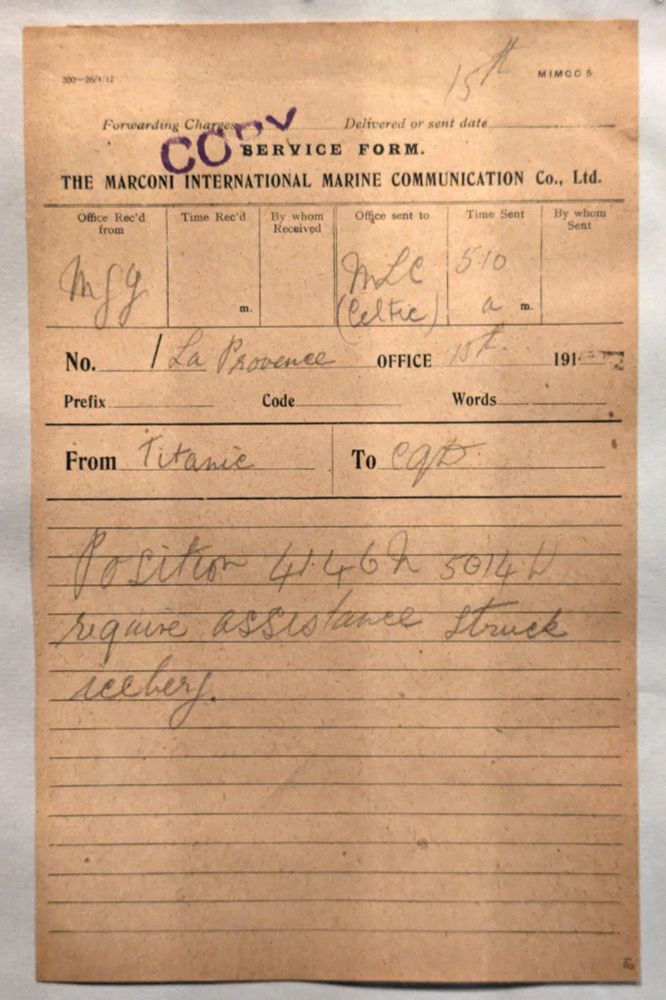 15th
200—26/4/12
MIMCO 5
Forwarding Charges
Delivered or sent date
COPY
SERVICE FORM.
THE MARCONI INTERNATIONAL MARINE COMMUNICATION Co., Ltd.
Office Rec'd from Time Rec'd By whom Received Office sent to Time Sent By whom Sent
MGY m. MLC (Celtic) 5.10 a m.
No. 1 La Provence OFFICE 15th 191
Prefix Code Words
From Titanic To CQD
Position 41.46 N 5014 W
require assistance struck
iceberg.